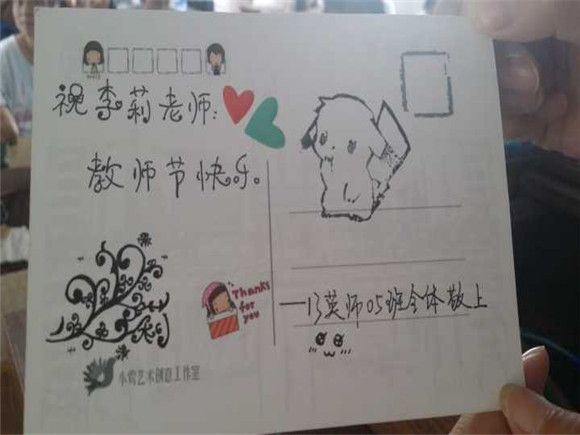 祝李莉老师:
教师节快乐。
Thanks
for
you
——13英师05班全体敬上
艺术创意工作室